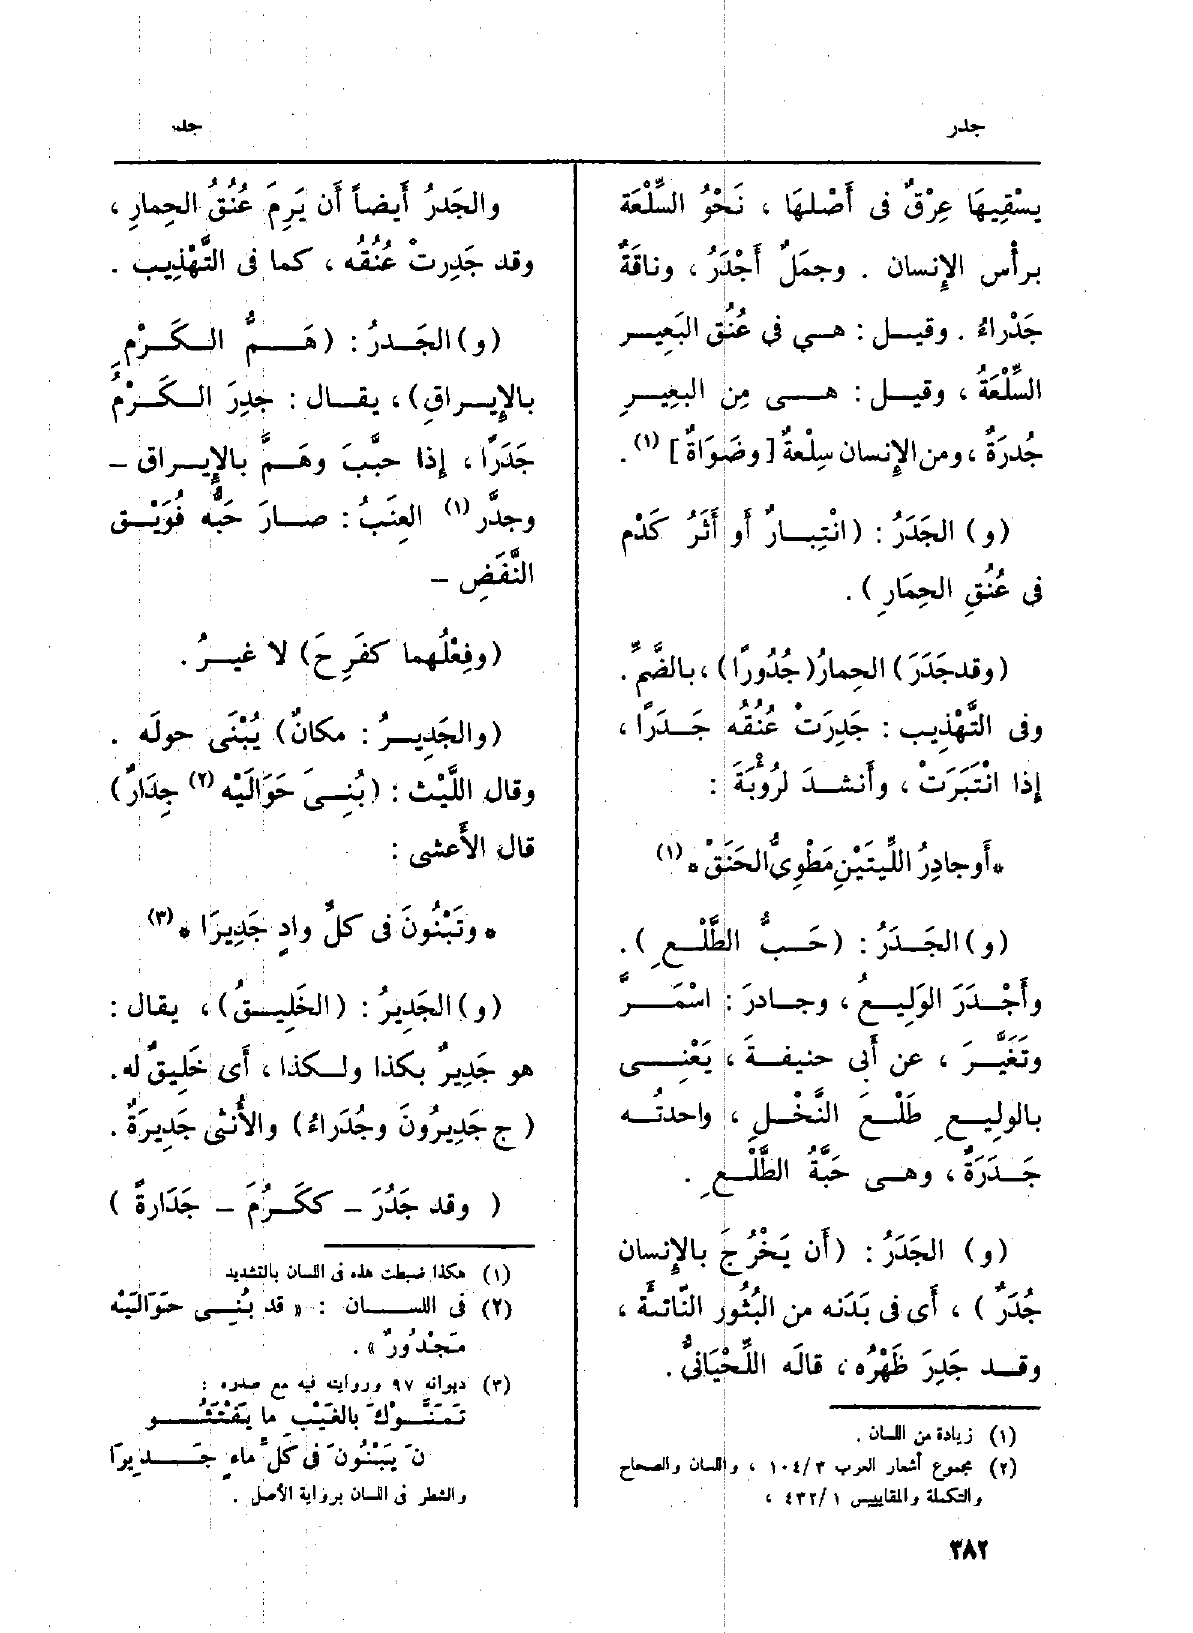 جدر
جدر
يسْقِيهَا عِرْقٌ فى أَصْلهَا ، نَحْوُ السِّلْعَة
برأْس الإِنسان . وجمَلٌ أَجْدَرُ ، وناقَةٌ
جَدْراءُ . وقيل : هى فى عُنُق البَعِير
السِّلْعَةُ ، وقيل : هى مِن البعِيرِ
جُدرَةٌ ، ومن الإِنسان سِلْعةٌ [ وضَوَاةٌ ] (١) .
(و) الجَدَرُ : (انْتِبارٌ أَو أَثَرُ كَدْمٍ
فى عُنُقِ الحِمَارِ ) .
(وقد جَدَرَ) الحِمارُ (جُدُورًا) ، بالضّمّ .
وفى التَّهْذِيب : جَدِرَتْ عُنُقُه جَدَرًا ،
إِذا انْتَبَرَتْ ، وأَنشدَ لرُؤْبَةَ :
* أَو جادِرُ اللِّيتَيْنِ مَطْوِىُّ الحَنَقْ * (١)
(و) الجَدَرُ : (حَبُّ الطَّلْعِ ) .
وأَجْدَرَ الوَلِيعُ ، وجادَرَ : اسْمَرَّ
وتَغَيَّرَ ، عن أَبى حنيفةَ ، يَعْنِى
بالولِيعِ طَلْعَ النَّخْلِ ، واحدتُه
جَدَرَةٌ ، وهى حَبَّةُ الطَّلْعِ .
(و) الجَدَرُ : (أَن يَخْرُجَ بالإِنسان
جُدَرٌ ) ، أَى فى بَدَنه من البُثُورِ النّاتئَةِ ،
وقد جَدِرَ ظَهْرُه ، قاله اللِّحْيَانىُّ .
(١) زيادة من اللسان .
(٢) مجموع أشعار العرب ١٠٤/٣ ، واللسان والصحاح
والتكملة والمقاييس ٤٣٢/١ ،
والجَدَرُ أَيضاً أَن يَرِمَ عُنُقُ الحِمارِ ،
وقد جَدِرتْ عُنُقُه ، كما فى التَّهْذِيب .
(و) الجَدَرُ : (هَمُّ الكَرْمِ
بالإِيراقِ) ، يقال : جدِرَ الكَرْمُ
جَدَرًا ، إِذا حبَّبَ وهَمَّ بالإِيراق –
وجدَّر (١) العِنَبُ : صارَ حَبُّه فُوَيْقَ
النَّفَضِ –
(وفِعْلُهما كفَرِحَ) لا غيرُ .
(والجَدِيرُ : مكانٌ) يُبْنَى حولَه .
وقال اللَّيْث : (بُنِىَ حَوَالَيْه (٢) جِدَارٌ)
قال الأَعشى :
* وتَبْنُونَ فى كلِّ وادٍ جَدِيرَا * (٣)
(و) الجَدِيرُ : (الخَلِيقُ) ، يقال :
هو جَدِيرٌ بكذا ولكذا ، أَى خَلِيقٌ له .
( ج جَدِيرُونَ وجُدَرَاءُ) والأُنثى جَدِيرَةٌ .
( وقد جَدُرَ – ككَرُمَ – جَدَارةً )
(١) هكذا ضبطت هذه فى اللسان بالتشديد
(٢) فى اللسان : « قد بُنِى حَوَالَيْه
مَجْدُورٌ » .
(٣) ديوانه ٩٧ وروايته فيه مع صدره :
تَمَنَّوْكَ بالغَيْبِ ما يَفْتَئُو
نَ يَبْنُونَ فى كلِّ ماءٍ جَدِيرَا
والشطر فى اللسان برواية الأصل .
٣٨٢